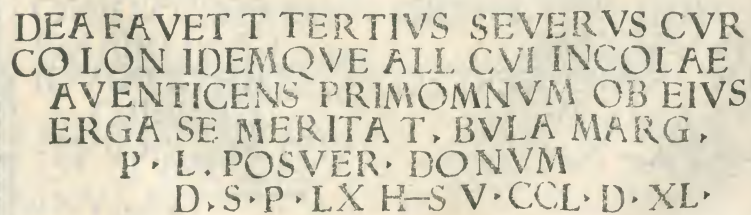 DEA FAVET T TERTIVS SEVERVS CVR
CO LON IDEMQVE ALL CVI INCOLAE
AVENTICENS PRIMOMNVM OB EIVS
ERGA SE MERITA T, BVLA MARG,
P · L. POSVER· DONVM
D, S · P · LX H–S V · CCL· D · XL·